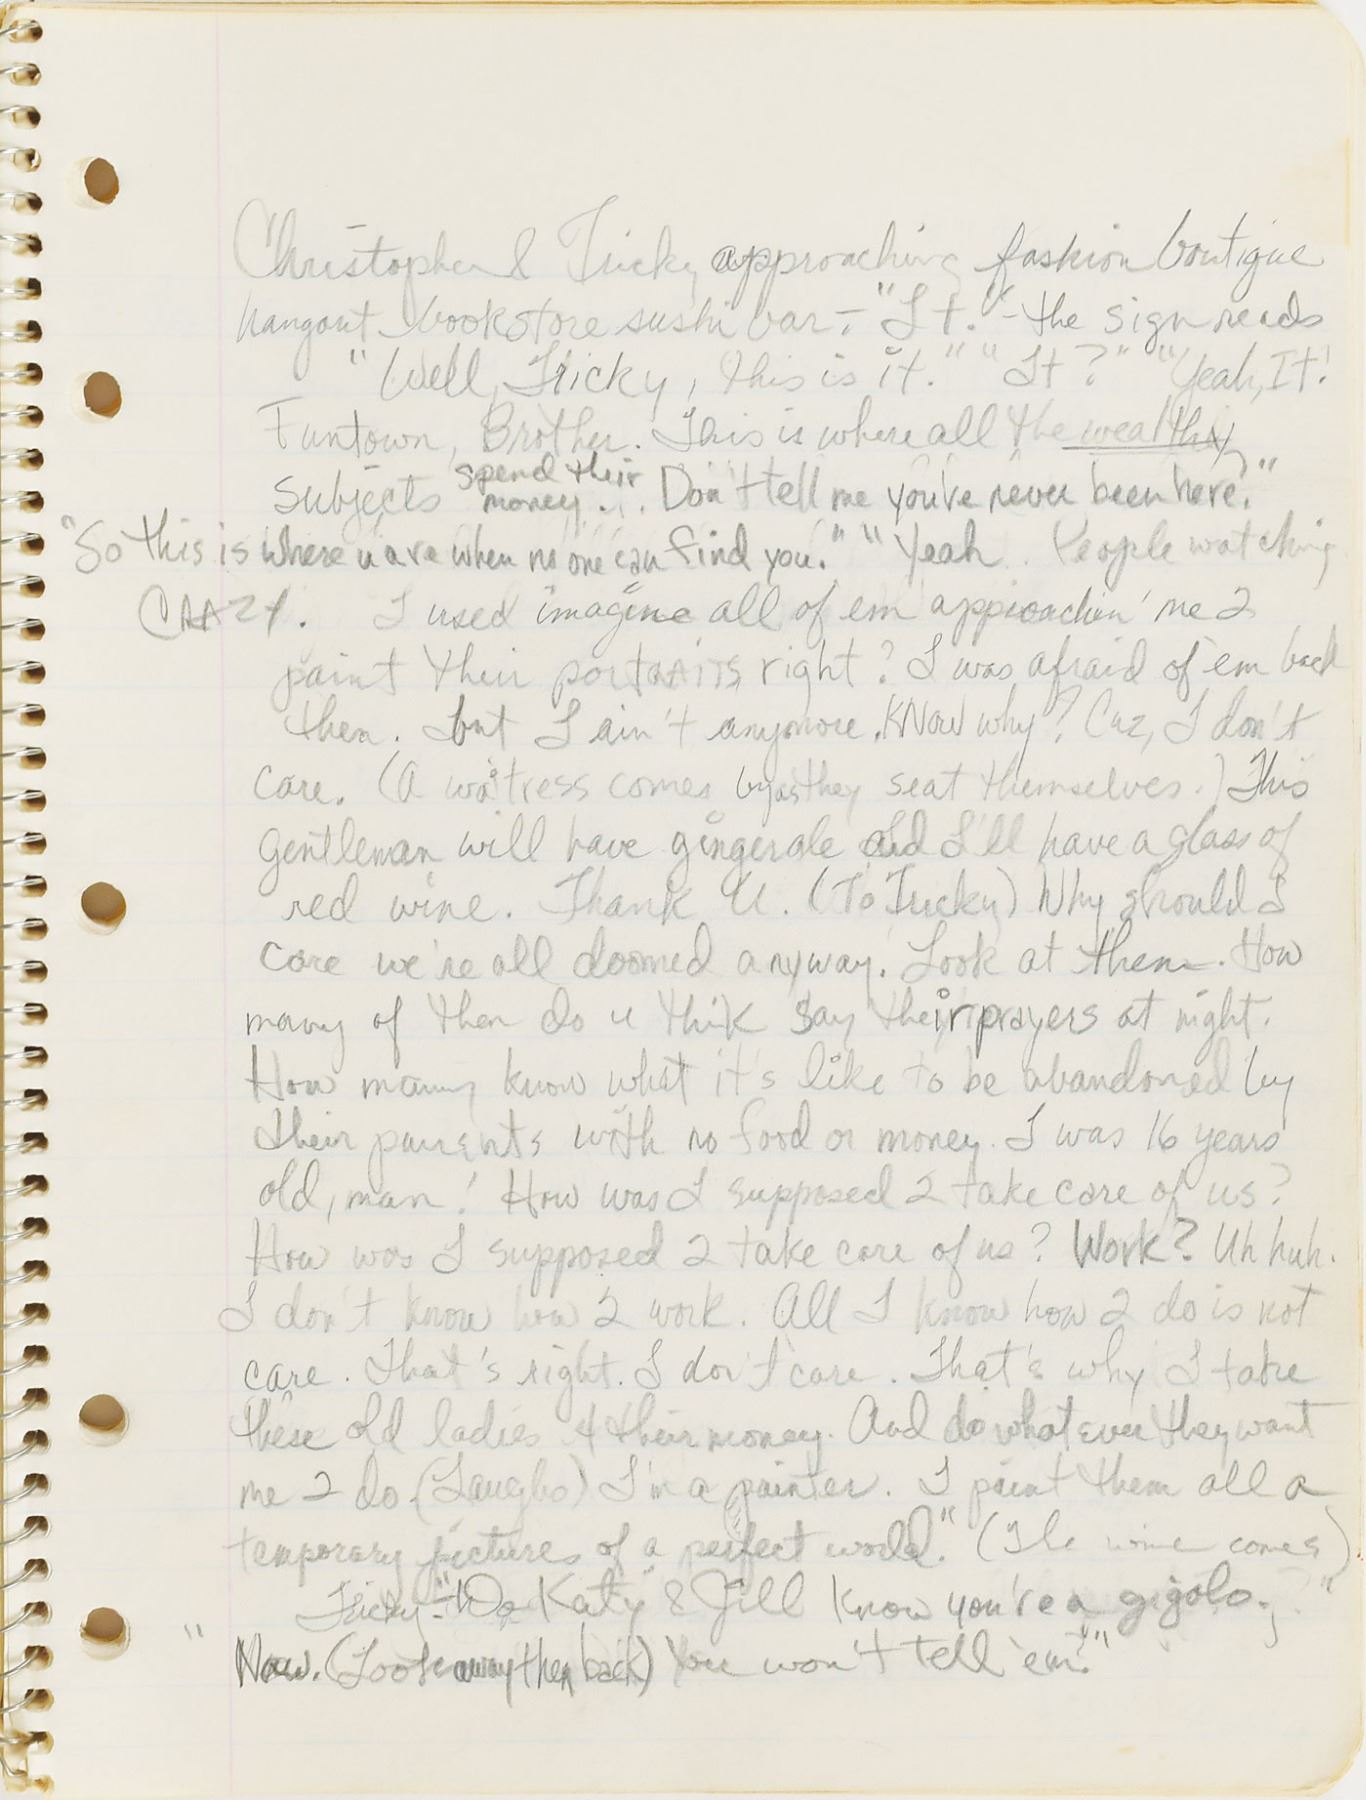 Christopher & Tricky approaching fashion boutique
hangout bookstore sushi bar - "It." - the sign reads
"Well, Tricky, this is it." "It?" "Yeah, It!
Funtown, Brother. This is where all the wealthy
subjects spend their money... Don't tell me you've never been here?"
"So this is where u are when no one can find you." "Yeah. People watching
CRAZY. I used imagine all of em approachin' me 2
paint their portraits, right? I was afraid of 'em back
then. but I ain't anymore. Know why? Cuz, I don't
care. (A waitress comes by as they seat themselves.) This
gentleman will have gingerale and I'll have a glass of
red wine. Thank U. (To Tricky) Why should I
care we're all doomed anyway. Look at them. How
many of them do u think say their prayers at night.
How many know what it's like to be abandoned by
their parents with no food or money. I was 16 years
old, man! How was I supposed 2 take care of us?
How was I supposed 2 take care of us? Work? Uh huh.
I don't know how 2 work. All I know how 2 do is not
care. That's right. I don't care. That's why I take
these old ladies 4 their money. And do what ever they want
me 2 do. (Laughs) I'm a painter. I paint them all a
temporary pictures of a perfect world." (The wine comes)
Tricky - "Do Katy & Jill know you're a gigolo?"
"Naw. (Looks away then back) You won't tell 'em?"